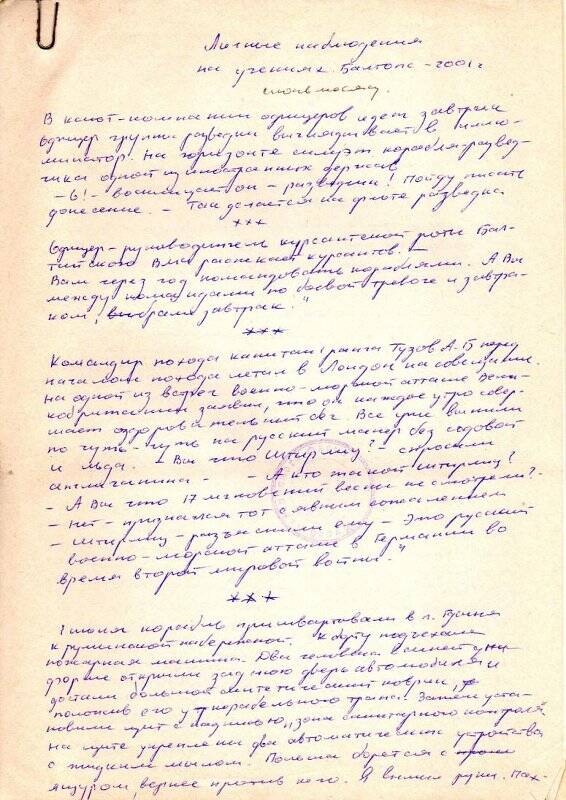 Личные наблюдения
на учениях Балтопс-2001г
В кают-компании офицеров идет завтрак
Офицер группы разведки выглядывает в иллю-
минатор. На горизонте силуэт корабля-развед-
чика одной из иностранных держав
- О! - воскликнул он - разведчик! Пойду писать
донесение. - Так делается на флоте разведка.
***
Офицер-руководитель курсантской роты Бал-
тийского ВМИ распекает курсантов. -
Вам через год командовать кораблями. А Вы
между командами по боевой тревоге и завтра-
ком, выбрали завтрак."
***
Командир похода капитан 1 ранга Тузов А.Б перед
началом похода летал в Лондон на совещание.
На одной из встреч военно-морской атташе Вели-
кобритании заявил, что он каждое утро совер-
шает оздоровительный бег. Все уже выпили
по чуть-чуть на русский манер без содовой
и льда. - Вы что Штирлиц? - спросили
англичанина - - А кто такой Штирлиц?
- А Вы что 17 мгновений весны не смотрели? -
- Нет - признался тот с явным сожалением
- Штирлиц - разъяснили ему - это русский
военно-морской атташе в Германии во
время второй мировой войны."
***
1 июня корабль пришвартовали в п. Гдыня
к румынской набережной. К борту подъехала
пожарная машина. Два человека в синей уни-
форме открыли заднюю дверь автомобиля и
достали большой синтетический коврик,
положив его у корабельного трапа. Затем уста-
новили щит с надписью „зона санитарного контроля"
На щите укреплены два автоматических устройства
с жидким мылом. Польша борется с
ящуром, вернее против него. Я вымыл руки. Пах-